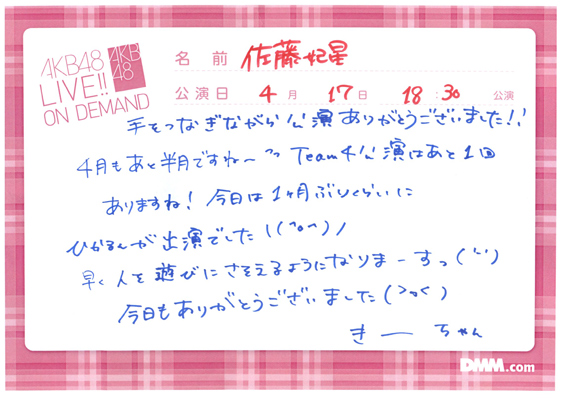 AKB48
LIVE!!
ON DEMAND
AKB
48
名 前 佐藤妃星
公演日 4月 17日 18:30 公演
手をつなぎながら公演ありがとうございました!!
4月もあと半月ですね〜 Team4公演はあと1回
ありますね! 今日は1ヶ月ぶりくらいに
ひかるんが出演でした!(^o^)/
早く人を遊びにさそえるようになりまーすっ(^^)
今日もありがとうございました(>o<)
きーちゃん
DMM.com